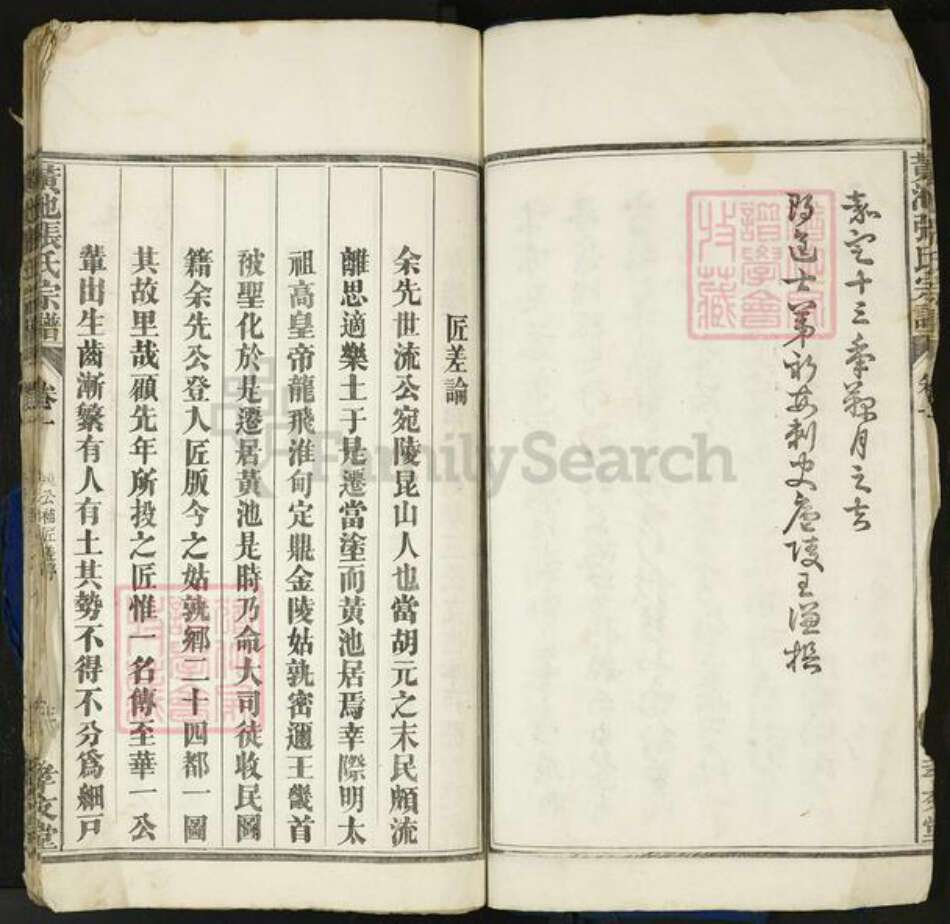 嘉定十三年
月之吉
賜進士第
刺史廬陵王
黃池張氏宗譜
卷一
匠差論
余先世流公宛陵昆山人也當胡元之末民頗流
離思適樂土于是遷當塗而黃池居焉幸際明太
祖高皇帝龍飛淮甸定鼎金陵姑孰密邇王畿首
被聖化於是遷居黃池是時乃命大司徒收民圖
籍余先公登入匠版今之姑孰鄉二十四都一圖
其故里哉顧先年所投之匠惟一名傳至華一公
輩由生齒漸繁有人有土其勢不得不分爲細戶
黃池張氏宗譜
卷一
公補匠差
孝友堂
譜學會
收藏
FamilySearch